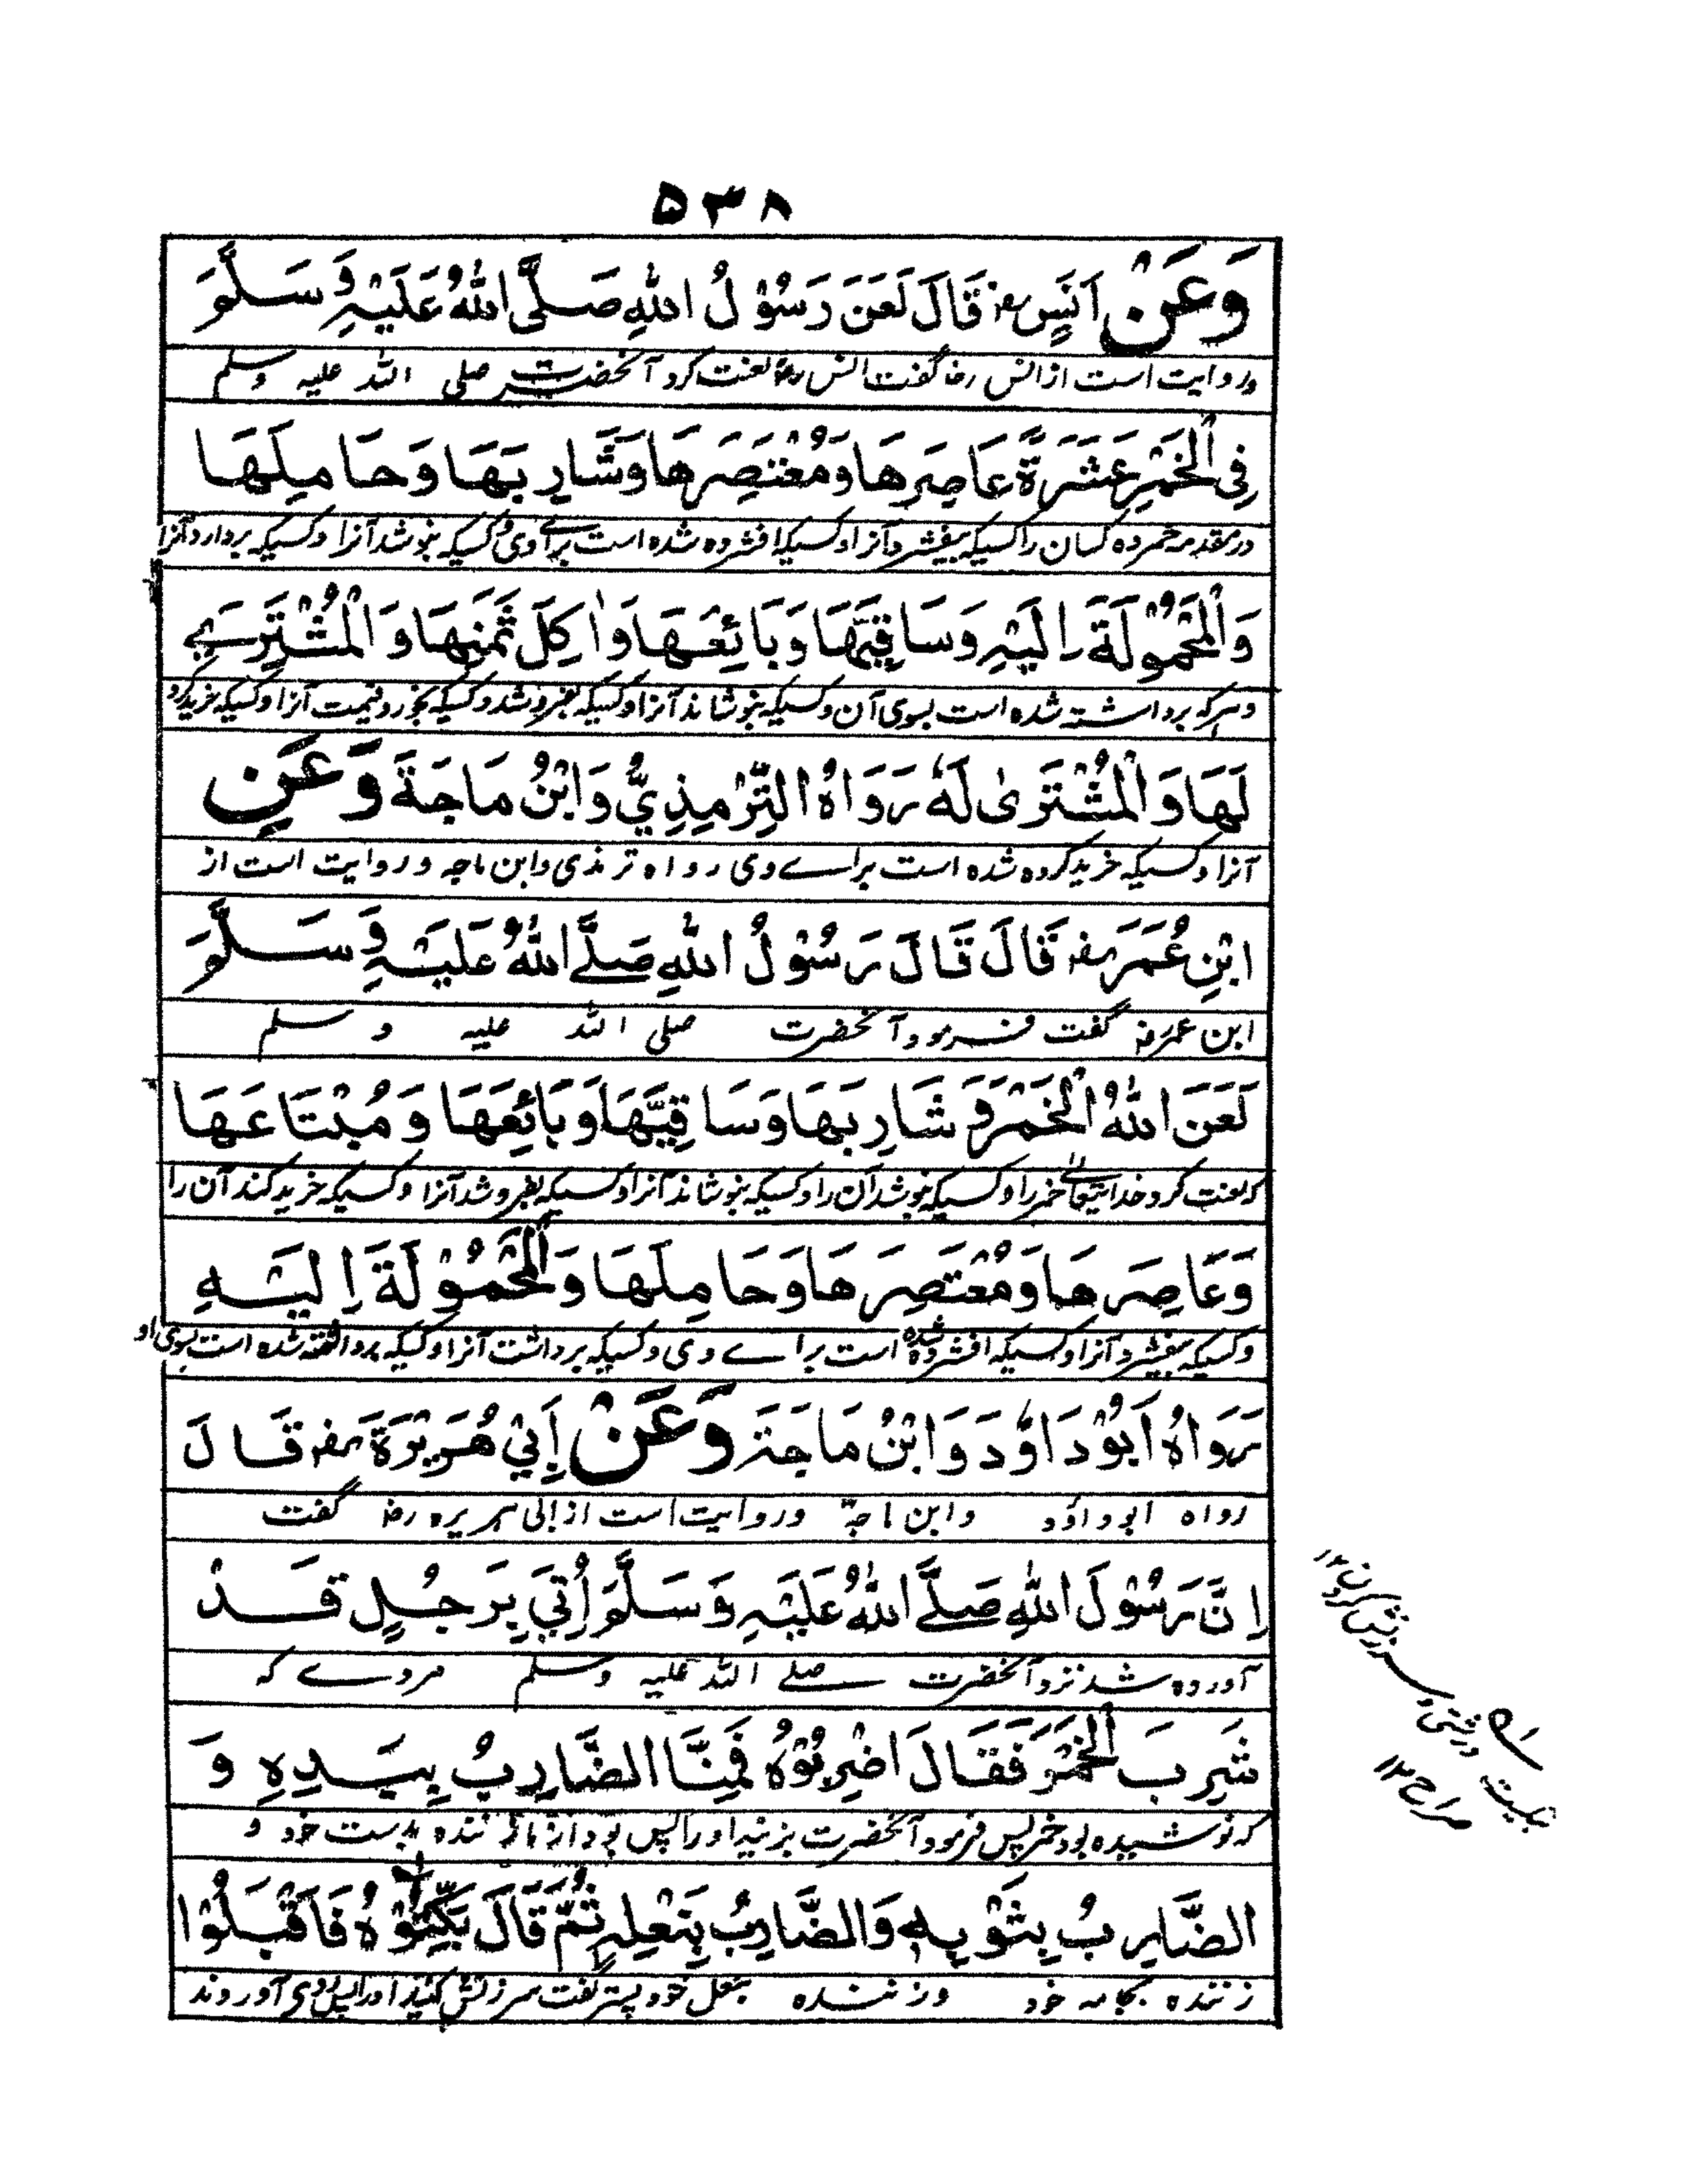 ۵۳۸
وَعَنْ اَنَسٍ رض قَالَ لَعَنَ رَسُوْلُ اللهِ صَلَّى اللهُ عَلَيْهِ وَسَلَّمَ
و روایت است از انس رض گفت انس رض لعنت کرد آنحضرت صلی الله علیه وسلم
فِى الْخَمْرِ عَشَرَةً عَاصِرَهَا وَمُعْتَصِرَهَا وَشَارِبَهَا وَحَامِلَهَا
در مقدمه خمر ده کسان را کسیکه بیفشرد آنرا و کسیکه افشرده شده است برای وی و کسیکه بنوشد آنرا و کسیکه بردارد آنرا
وَالْمَحْمُوْلَةَ اِلَيْهِ وَسَاقِيَهَا وَبَائِعَهَا وَاٰكِلَ ثَمَنِهَا وَالْمُشْتَرِے
و هرکه برداشته شده است بسوی آن و کسیکه بنوشاند آنرا و کسیکه بفروشد و کسیکه بخورد قیمت آنرا و کسیکه خرید کرد
لَهَا وَالْمُشْتَرٰى لَهٗ رَوَاهُ التِّرْمِذِيُّ وَابْنُ مَاجَةَ وَعَنِ
آنرا و کسیکه خرید کرده شده است براے وی رواه ترمذی و ابن ماجه و روایت است از
ابْنِ عُمَرَ رض قَالَ قَالَ رَسُوْلُ اللهِ صَلَّے اللهُ عَلَيْهِ وَسَلَّمَ
ابن عمر رض گفت فرمود آنحضرت صلی الله علیه وسلم
لَعَنَ اللهُ الْخَمْرَ وَشَارِبَهَا وَسَاقِيَهَا وَبَائِعَهَا وَمُبْتَاعَهَا
که لعنت کرد خدایتعالیٰ خمر را و کسیکه بنوشد آن را و کسیکه بنوشاند آنرا و کسیکه بفروشد آنرا و کسیکه خرید کند آن را
وَعَاصِرَهَا وَمُعْتَصِرَهَا وَحَامِلَهَا وَالْمَحْمُوْلَةَ اِلَيْهِ
و کسیکه بیفشرد آنرا و کسیکه افشرده شده است براے وی و کسیکه برداشت آنرا و کسیکه برداشته شده است بسوی او
رَوَاهُ اَبُوْدَاوٗدَ وَابْنُ مَاجَةَ وَعَنْ اَبِيْ هُرَيْرَةَ رض قَالَ
رواه ابوداؤد و ابن ماجة و روایت است از ابی هریره رض گفت
اِنَّ رَسُوْلَ اللهِ صَلَّے اللهُ عَلَيْهِ وَسَلَّمَ اُتِيَ بِرَجُلٍ قَدْ
آورده شد نزد آنحضرت صلے الله علیه وسلم مردے که
شَرِبَ الْخَمْرَ فَقَالَ اضْرِبُوْهُ فَمِنَّا الضَّارِبُ بِيَدِهِ وَ
که نوشیده بود خمر پس فرمود آنحضرت بزنید او را پس بود از ما زننده بدست خود و
الضَّارِبُ بِثَوْبِهٖ وَالضَّارِبُ بِنَعْلِهٖ ثُمَّ قَالَ بَكِّتُوْهُ فَاَقْبَلُوْا
زننده بجامه خود و زننده بنعل خود پستر گفت سرزنش کنید او را پس روی آوردند
تبکیت درشتی و سرزنش کردن ۱۲
صراح ۱۲